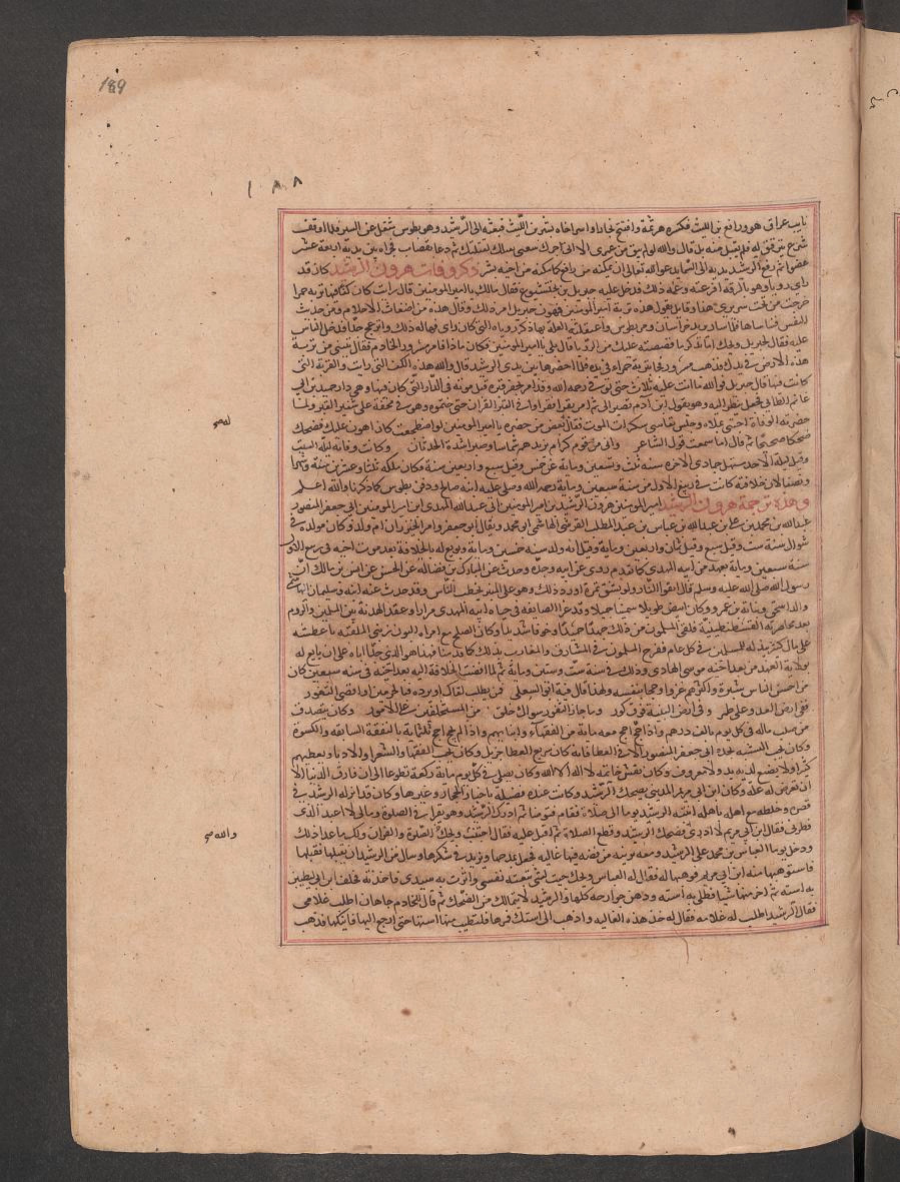 189
١٨٨
نايب عراق هو ورافع بن الليث فكسره هرثمة وافتتح بخارا واسر اخاه بشير بن الليث فبعثه الى الرشيد وهو بطوس مثقل عن السير فلما اوقف
شرع يترقق له فلم يقبل منه بل قال والله لو لم يبق من عمرى الا ان احرك شفتى بقتلك لقتلتك ثم دعا بقصاب فجزاه بين يديه اربعة عشر
عضوا ثم رفع الرشيد يديه الى السما يدعو الله تعالى ان يمكنه من رافع كما مكنه من اخيه بشير ذكر وفات هرون الرشيد كان قد
راى رويا وهو بالرقة افزعته وغمه ذلك فدخل عليه جبريل بن بختيشوع فقال مالك يا امير المومنين قال رايت كان كفا فيها تربة حمرا
خرجت من تحت سريرى هذا وقايل يقول هذه تربة امير المومنين فهون جبريل امر ذلك وقال هذه من اضغاث الاحلام ومن حديث
النفس فتناساها فلما سار يريد خراسان ومر بطوس واعتقلته العلة بها ذكر روياه التى كان راى فهاله ذلك وانزعج جدا فدخل الناس
عليه فقال لجبريل ويحك اما تذكر ما قصصته عليك من الرويا قال بلى يا امير المومنين فكان ماذا فامر مسرور الخادم فقال ايتنى من تربة
هذه الارض فى يدك فذهب مسرور فجا بتربة حمراء فى يده فلما احضرها بين يدى الرشيد قال والله هذه الكف التى رايت والتربة التى
كانت فيها قال جبريل فوالله ما اتت عليه ثلاث حتى توفى رحمه الله وقد امر بحفر قبره قبل موته فى الدار التى كان فيها وهى دار حميد بن ابى
غانم الطائى فجعل ينظر اليه وهو يقول ابن آدم تصير الى هذا ثم امر ان يقرا القران فى القبر فقراوا حتى ختموه وهو فى محفة على شفير القبر ولما
حضرته الوفاة احتبى بملاة وجلس يقاسى سكرات الموت فقال بعض من حضره يا امير المومنين لو اضطجعت كان اهون عليك فضحك
ضحكا صحيحا ثم قال اما سمعت قول الشاعر وانى من قوم كرام يزيدهم شماسا وصبرا شدة الحدثان وكانت وفاته ليلة السبت
وقيل ليلة الاحد مستهل جمادى الاخره سنه ثلث وتسعين وماية عن خمس وقيل سبع واربعين سنة فكان ملكه ثلثا وعشرين سنة وشهرا
ونصفا لان خلافته كانت فى ربيع الاول من سنة سبعين وماية رحمه الله وصلى عليه ابنه صالح ودفن بطوس كما ذكرنا والله اعلم
وهذه ترجمة هرون الرشيد امير المومنين هرون الرشيد بن امير المومنين ابى عبد الله المهدى ابن امير المومنين ابى جعفر المنصور
عبد الله بن محمد بن على بن عبد الله بن عباس بن عبد المطلب القرشى الهاشمى ابو محمد ويقال ابو جعفر وامه الخيزران ام ولد وكان مولده فى
شوال سنة ست وقيل سبع وقيل ثمان واربعين وماية وقيل انه ولد سنه خمسين وماية وبويع له بالخلافة بعد موت اخيه فى ربيع الاول
سنة سبعين وماية بعهد من ابيه المهدى كما تقدم روى عن ابيه وجده وحدث عن المبارك بن فضاله عن الحسن عن انس بن مالك ان
رسول الله صلى الله عليه وسلم قال اتقوا النار ولو بشق تمرة اورد ذلك وهو على المنبر يخطب الناس وقد حدث عنه ابنه وسليمان الهاشمى
والد اسحق ونباتة بن عمرو وكان ابيض طويلا سمينا جميلا وقد غزا الصايفة فى حياه ابيه المهدى مرارا وعقد الهدنة بين المسلمين والروم
بعد محاصرته القسطنطينية فلقى المسلمون من ذلك جهدا جهيدا وخوفا شديدا وكان الصلح مع امراه اليون وهى الملقبه باغطسة
على مال كثير بذله للمسلمين فى كل عام ففرح المسلمون فى المشارق والمغارب بذلك كما قدمنا فهذا هو الذى حدا اباه على ان بايع له
بولاية العهد من بعد اخيه موسى الهادى وذلك فى سنة ست وستين وماية ثم لما افضت الخلافة اليه بعد اخيه فى سنه سبعين كان
من احسن الناس سيرة واكثرهم غزوا وحجا بنفسه ولهذا قال فيه ابو السعلى فمن يطلب لقاك او يرده فبالحرمين او اقصى الثغور
ففى ارض العدو على طمر وفى ارض البنية فوق كور وما حاز الثغور سواك خلق من المستخلفين على الامور وكان يتصدق
من صلب ماله فى كل يوم بالف درهم واذا حج احج معه ماية من الفقهاء وابنايهم واذا لم يحج احج ثلثماية بالنفقة السابغه والكسوة
وكان يحب التشبه بجده ابى جعفر المنصور الا فى العطا فانه كان سريع العطا جزيل وكان يحب الفقها والشعرا والادبا ويعطيهم
كثيرا ولا يضيع لديه يد ولا معروف وكان نقش خاتمه لا اله الا الله وكان يصلى فى كل يوم ماية ركعة تطوعا الى ان فارق الدنيا الا
ان تعرض له علة وكان ابن ابى مريم المدينى يضحك الرشيد وكانت عنده فضيلة باخبار الحجاز وغيرها وكان قد انزله الرشيد فى
قصره وخلطه مع اهله نبهه الرشيد يوما الى صلاة فقام فتوضا ثم ادرك الرشيد وهو يقرا فى الصلوة ومالى لا اعبد الذى
فطرنى فقال ابن ابى مريم لا ادرى فضحك الرشيد وقطع الصلاة ثم اقبل عليه فقال اجتنب ويحك الصلوة والقران ولك ما عدا ذلك
ودخل يوما العباس بن محمد على الرشيد ومعه برنية من فضه فيها غاليه فجعل يمدحها ويزيد فى شكرها وسال من الرشيد ان يقبلها فقبلها
فاستوهبها منه ابن ابى مريم فوهبها له فقال له العباس ويحك جيت بشى منعته نفسى واثرت به سيدى فاخذته فحلف ابن ابى مريم ليطيبن
به استه ثم اخذ منها شيا فطلى به استه ودهن جوارحه كلها والرشيد لا يتمالك من الضحك ثم قال لخادم جاهان اطلب غلامى
فقال الرشيد اطلب له غلامه فقال له خذ هذه الغاليه واذهب الى استك فمرها فلتطيب منها استها حتى ارجع اليها فانيكها فذهب